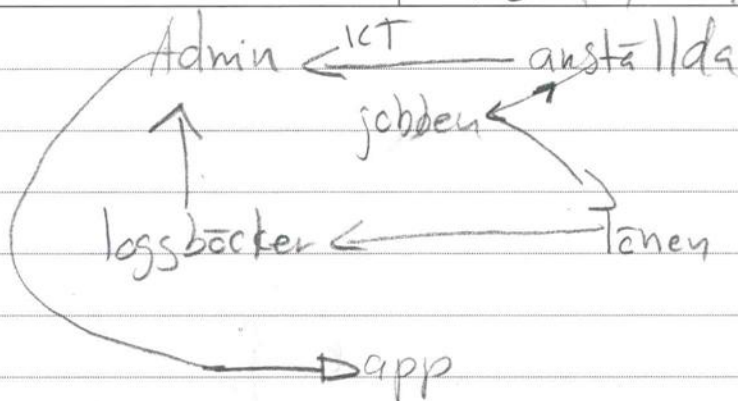 Admin ICT anställda
jobben
loggböcker Lönen
app